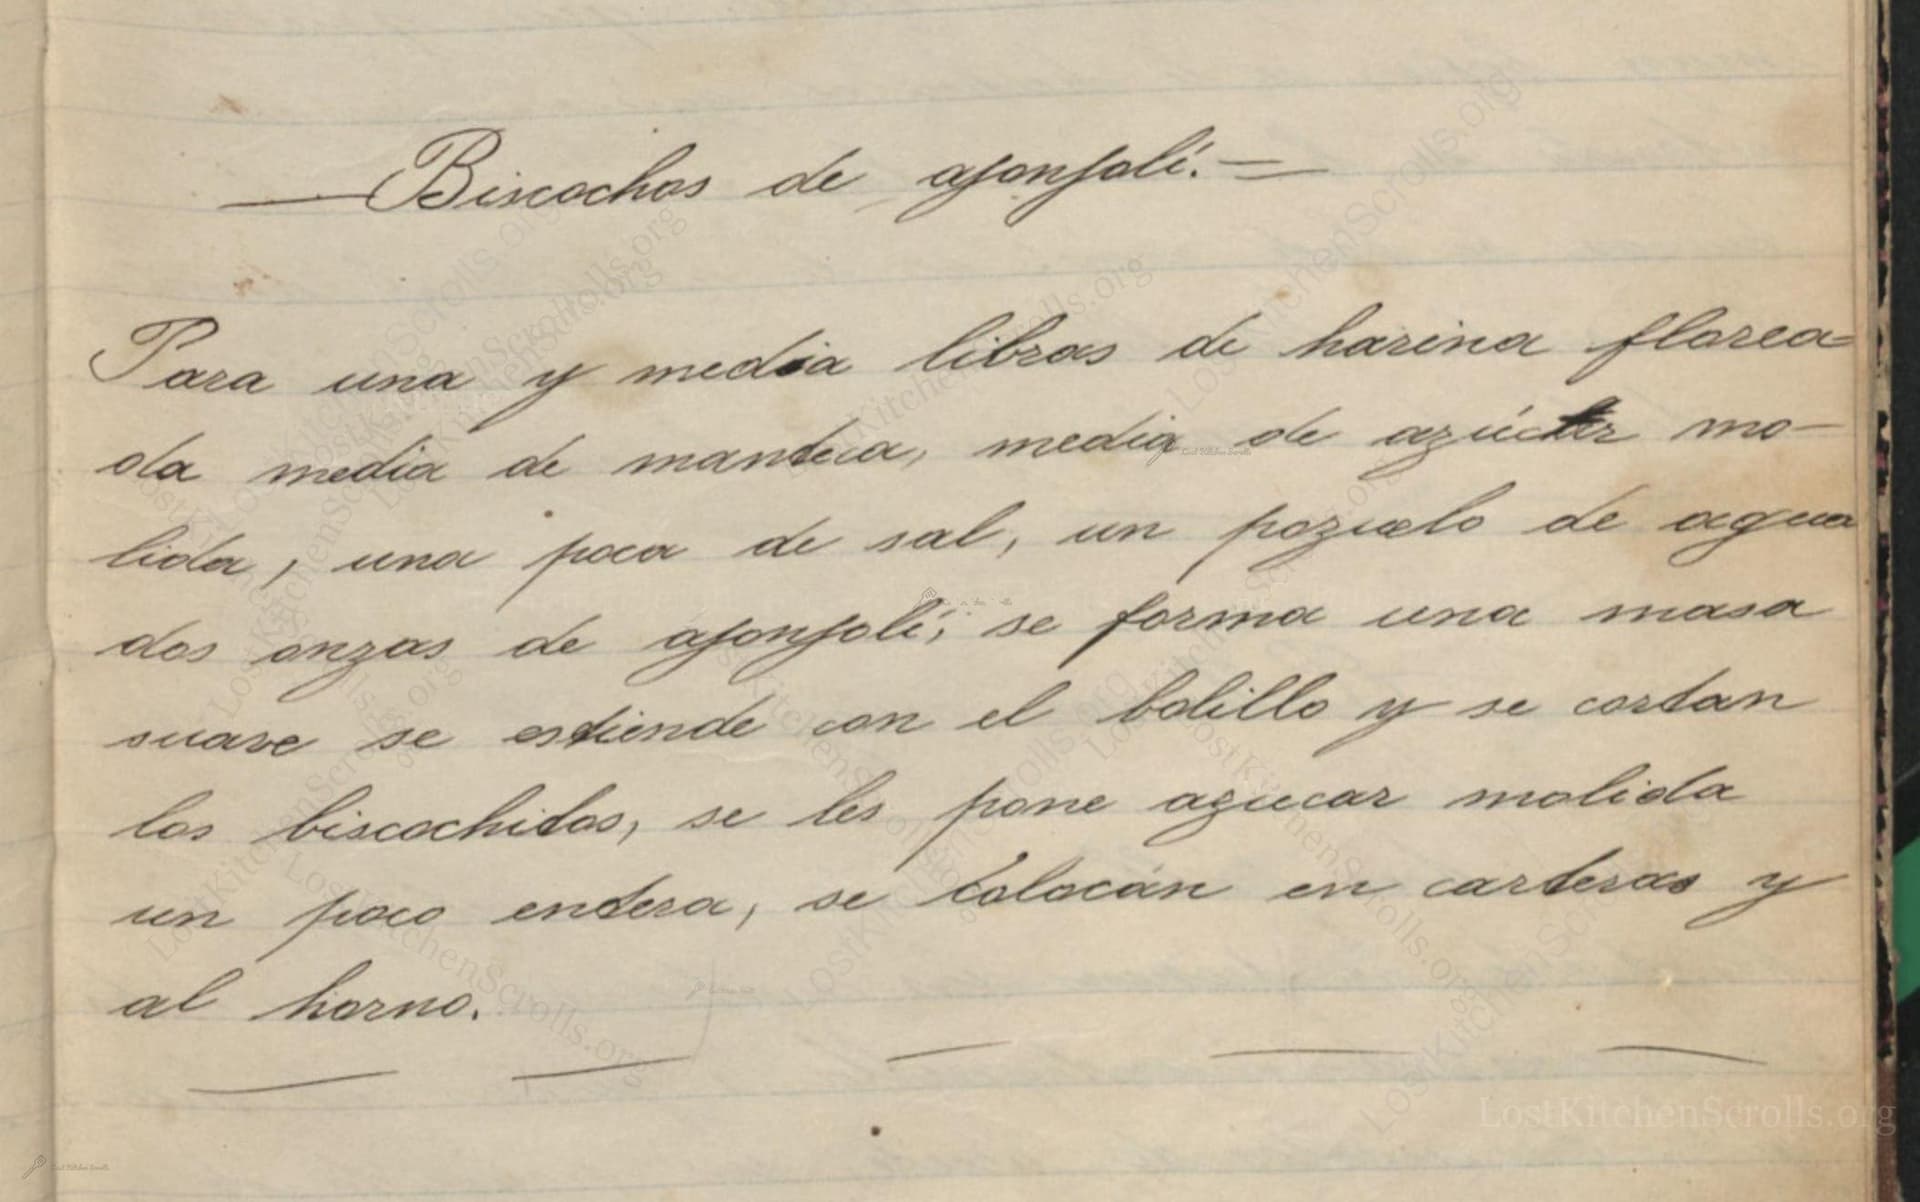 Biscochos de ajonjolí.=
Para una y media libras de harina florea=
da media de manteca, media de azúcar mo-
lida, una poca de sal, un pozuelo de agua
dos onzas de ajonjolí; se forma una masa
suave se estiende con el bolillo y se cortan
los biscochitos, se les pone azucar molida
un poco entera, se colocán en carteras y
al horno.
LostKitchenScrolls.org